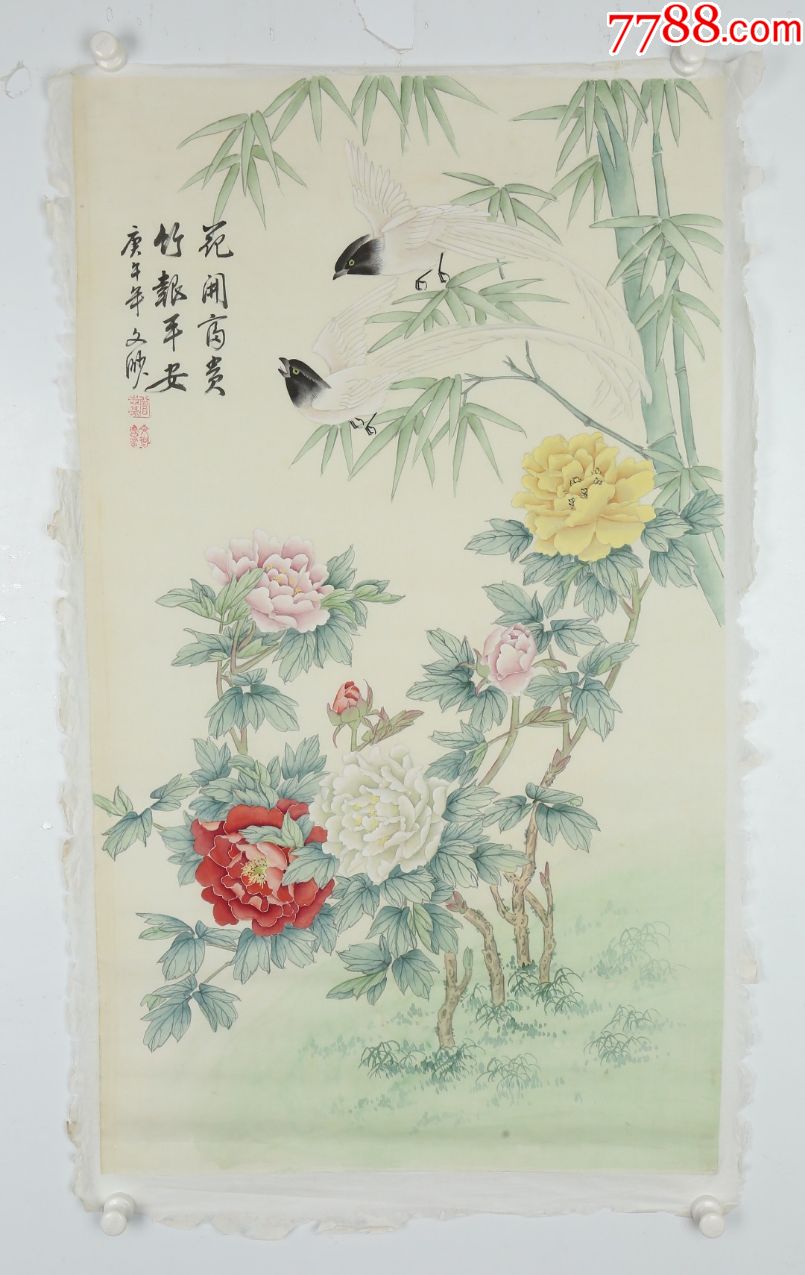 7788.com
花開富貴
竹報平安
庚午年文